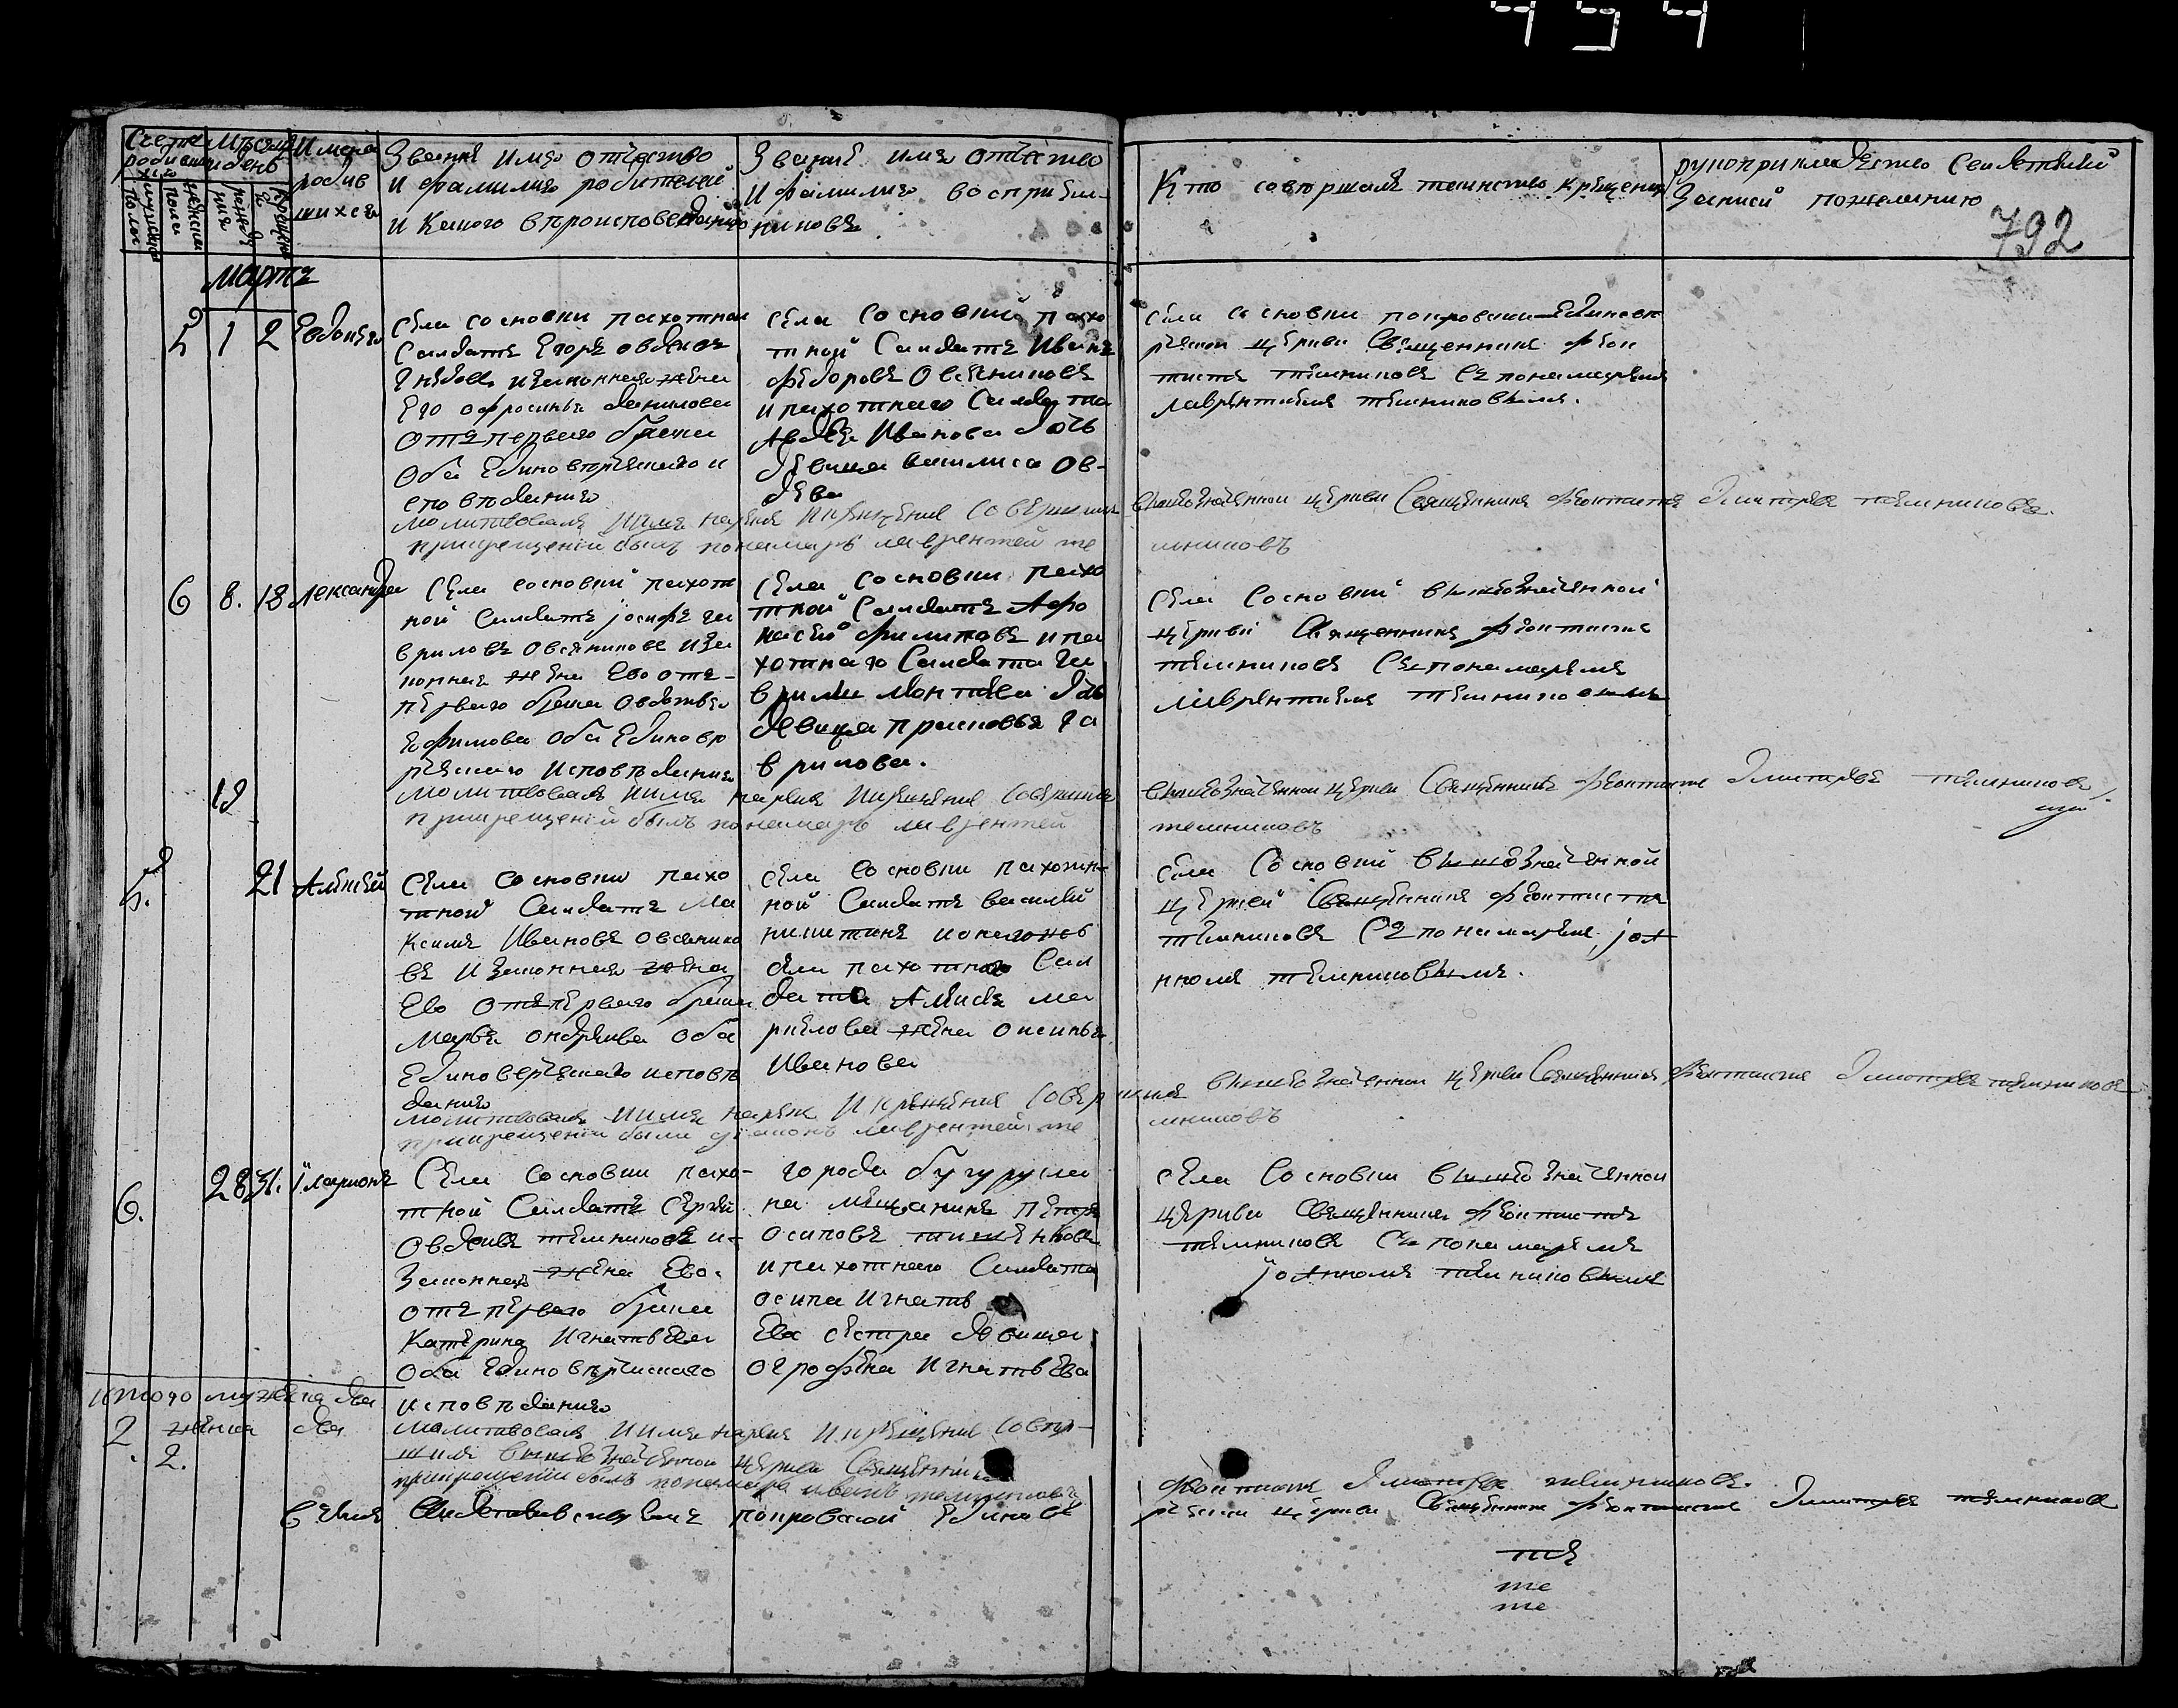 454
Счетъ родившихся
мужеска пола
женска пола
Месяцъ и день
рожденїя
крещенїя
Имена
родив
шихся
Званїе имя отчество
и фамилия родителей
и какого вероисповеданию
Званїе имя отчество
и фамилию восприем-
никовъ
Кто совершалъ таинство крещения
рукоприкладество свидетелей
записи пожеланию
792
Мартъ
5 1 2 Евдокея
села сосновки пахотной
Салдатъ Егоръ овдеевъ
изаконная жена
Его офросинья данилова
отъ первого брака
оба Единоверческаго и
споведанию
села Сосновки пахо
тной Салдатъ Иванъ
федоровъ Овсяниковъ
и пахотнаго Салдата
Авдея Иванова дочь
девица василиса Ов-
деева
села сосновки покровски Единове
рческой церкви Священникъ феок
тистъ телниковъ съ понамарем
лаврентиемъ телниковымъ.
молитвовалъ имя нарекъ икрещение совершилъ вышеозначенной церкви Священникъ феоктистъ Дмитревъ телниковъ.
прикрещении былъ понамарь лаврентей те лниковъ
6 8. 13 Александра
села сосновки пахотн
ной Салдатъ Iосифъ га
вриловъ Овсяниковъ иза
конная жена Его отъ
первого брака Овдотья
Ефимова оба Единове
рческаго исповеданию
села сосновки пахо
тной Салдатъ Афо
насей филиповъ и па
хотнаго Салдата Га
врилы дочь
девица прасковья га
врилова.
села Сосновки вышеозначенной
церкви Священникъ феоктистъ
телниковъ съ понамаремъ
лаврентиемъ телниковымъ
молитвовалъ имя нарекъ икрещение совершилъ вышеозначенной церкви Священникъ феоктистъ Дмитревъ телниковъ
прикрещении былъ понамарь лаврентей телниковъ
5. 19 21 Алексей
села сосновки пахо
тной Салдатъ Ма
ксимъ Ивановъ овсянико
въ и законная жена
Ево отъ первого брака
марья ондреева оба
Единоверческаго испове
данию
села сосновки пахотн-
ной Салдатъ василий
никитинъ и оногожъ
села пахотного Сал
дата Алексея ма
жена оксинья
Иванова
села Сосновки вышеозначенной
церкви Священникъ феоктистъ
телниковъ съ понамаремъ Iоа
нномъ телниковымъ.
молитвовалъ имя нарекъ и крещение совершилъ вышеозначенной церкви Священникъ феоктистъ Дмитревъ телниковъ
прикрещении были лаврентей те лниковъ
6. 28 31. Иларионъ
Села сосновки пахо-
тной Салдатъ Сергей
Овдеевъ телниковъ и-
Законная жена Ево.
отъ первого брака
Катерина Игнатьева
оба Единоверческаго
исповеданию
города бугурусла
на мещанинъ Петръ
осиповъ
и пахотнаго Салдата
осипа Игнать
Ева сестра девица
огрофена Игнатьева
села Сосновки вышеозначенной
церкви Священникъ феоктистъ
телниковъ съ понамаремъ
Iоанномъ телниковымъ
итого мужеска два
2 женска два
2.
молитвовалъ и имя нарекъ и крещение совер-
шилъ вышеозначенной церкви Священникъ феоктистъ Дмитревъ телниковъ.
прикрещении былъ понамарь иванъ телниковъ
Всемъ свидетельствуемъ покровской Единове рческой церкви Священникъ феоктистъ Дмитревъ телниковъ
те
те
те